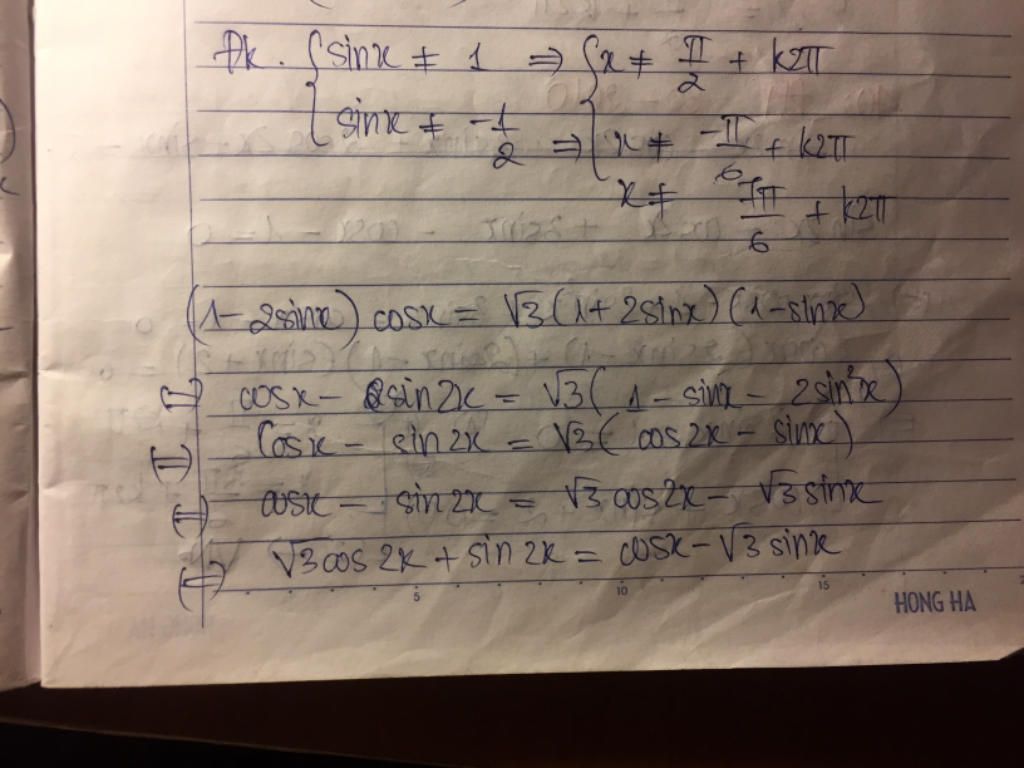 Đk. { sinx ≠ 1 ⇒ { x ≠ π/2 + k2π
sinx ≠ -1/2 ⇒ x ≠ -π/6 + k2π
x ≠ 7π/6 + k2π
(1-2sinx) cosx = √3(1+2sinx)(1-sinx)
⇔ cosx - sin2x = √3(1-sinx-2sin²x)
⇔ cosx - sin2x = √3(cos2x - sinx)
⇔ cosx - sin2x = √3cos2x - √3sinx
⇔ √3cos2x + sin2x = cosx - √3sinx
5 10 15
HONG HA